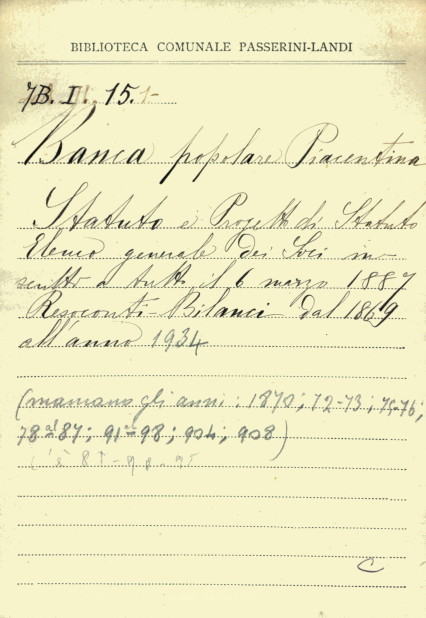 BIBLIOTECA COMUNALE PASSERINI-LANDI
7B. I. 15.
Banca popolare Piacentina
Statuto e Progetti di Statuto
Elenco generale dei Soci in-
scritti a tutto il 6 marzo 1887
Resoconti Bilanci dal 1869
all'anno 1934
(mancano gli anni: 1870; 72-73; 75-76;
78 al 87; 91-98; 904; 908)
C